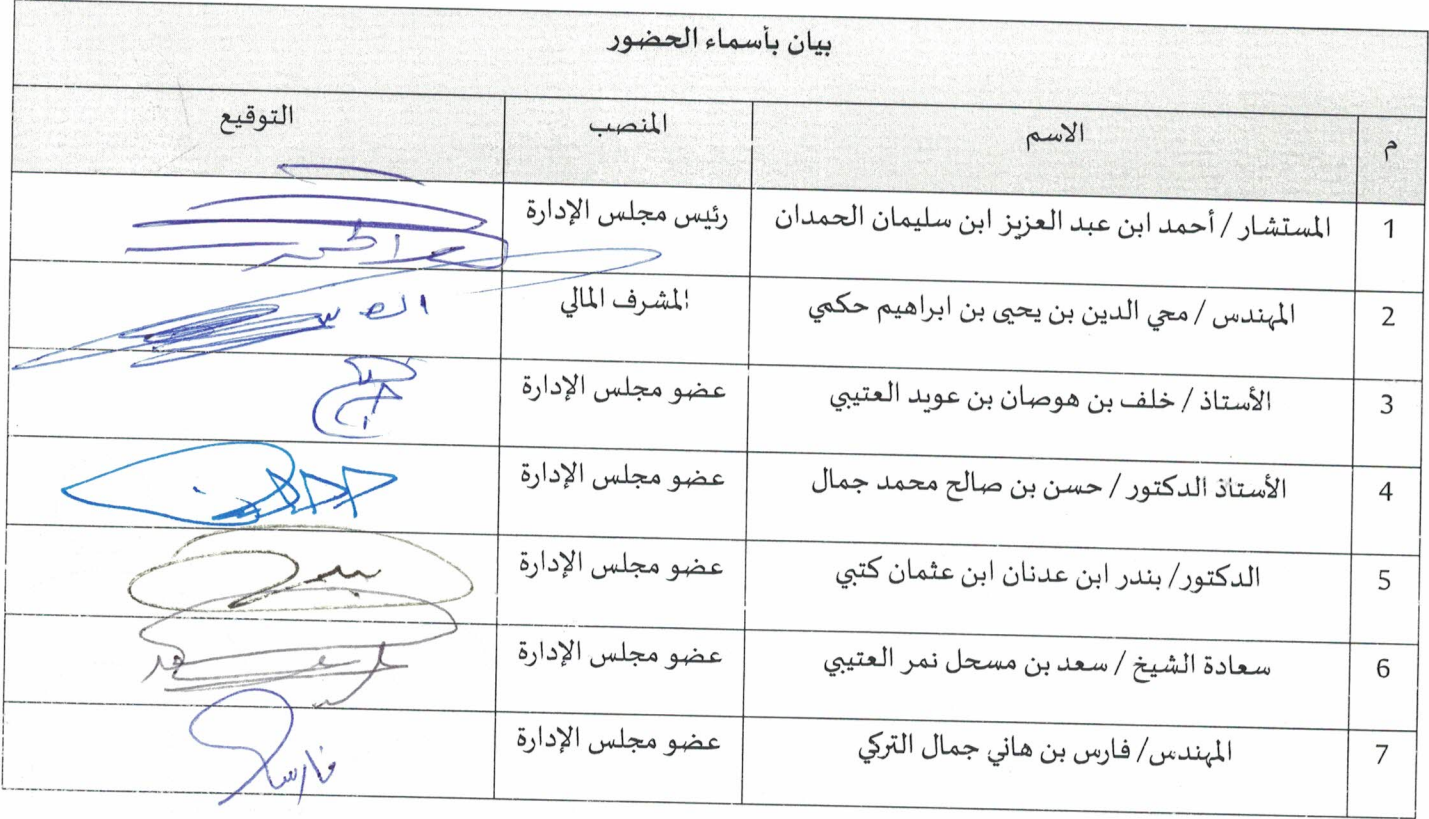 بيان بأسماء الحضور
م الاسم المنصب التوقيع
1 المستشار / أحمد ابن عبد العزيز ابن سليمان الحمدان رئيس مجلس الإدارة
2 المهندس / محي الدين بن يحيى بن ابراهيم حكمي المشرف المالي
3 الأستاذ / خلف بن هوصان بن عويد العتيبي عضو مجلس الإدارة
4 الأستاذ الدكتور / حسن بن صالح محمد جمال عضو مجلس الإدارة
5 الدكتور/ بندر ابن عدنان ابن عثمان كتبي عضو مجلس الإدارة بندر
6 سعادة الشيخ / سعد بن مسحل نمر العتيبي عضو مجلس الإدارة
7 المهندس/ فارس بن هاني جمال التركي عضو مجلس الإدارة فارس